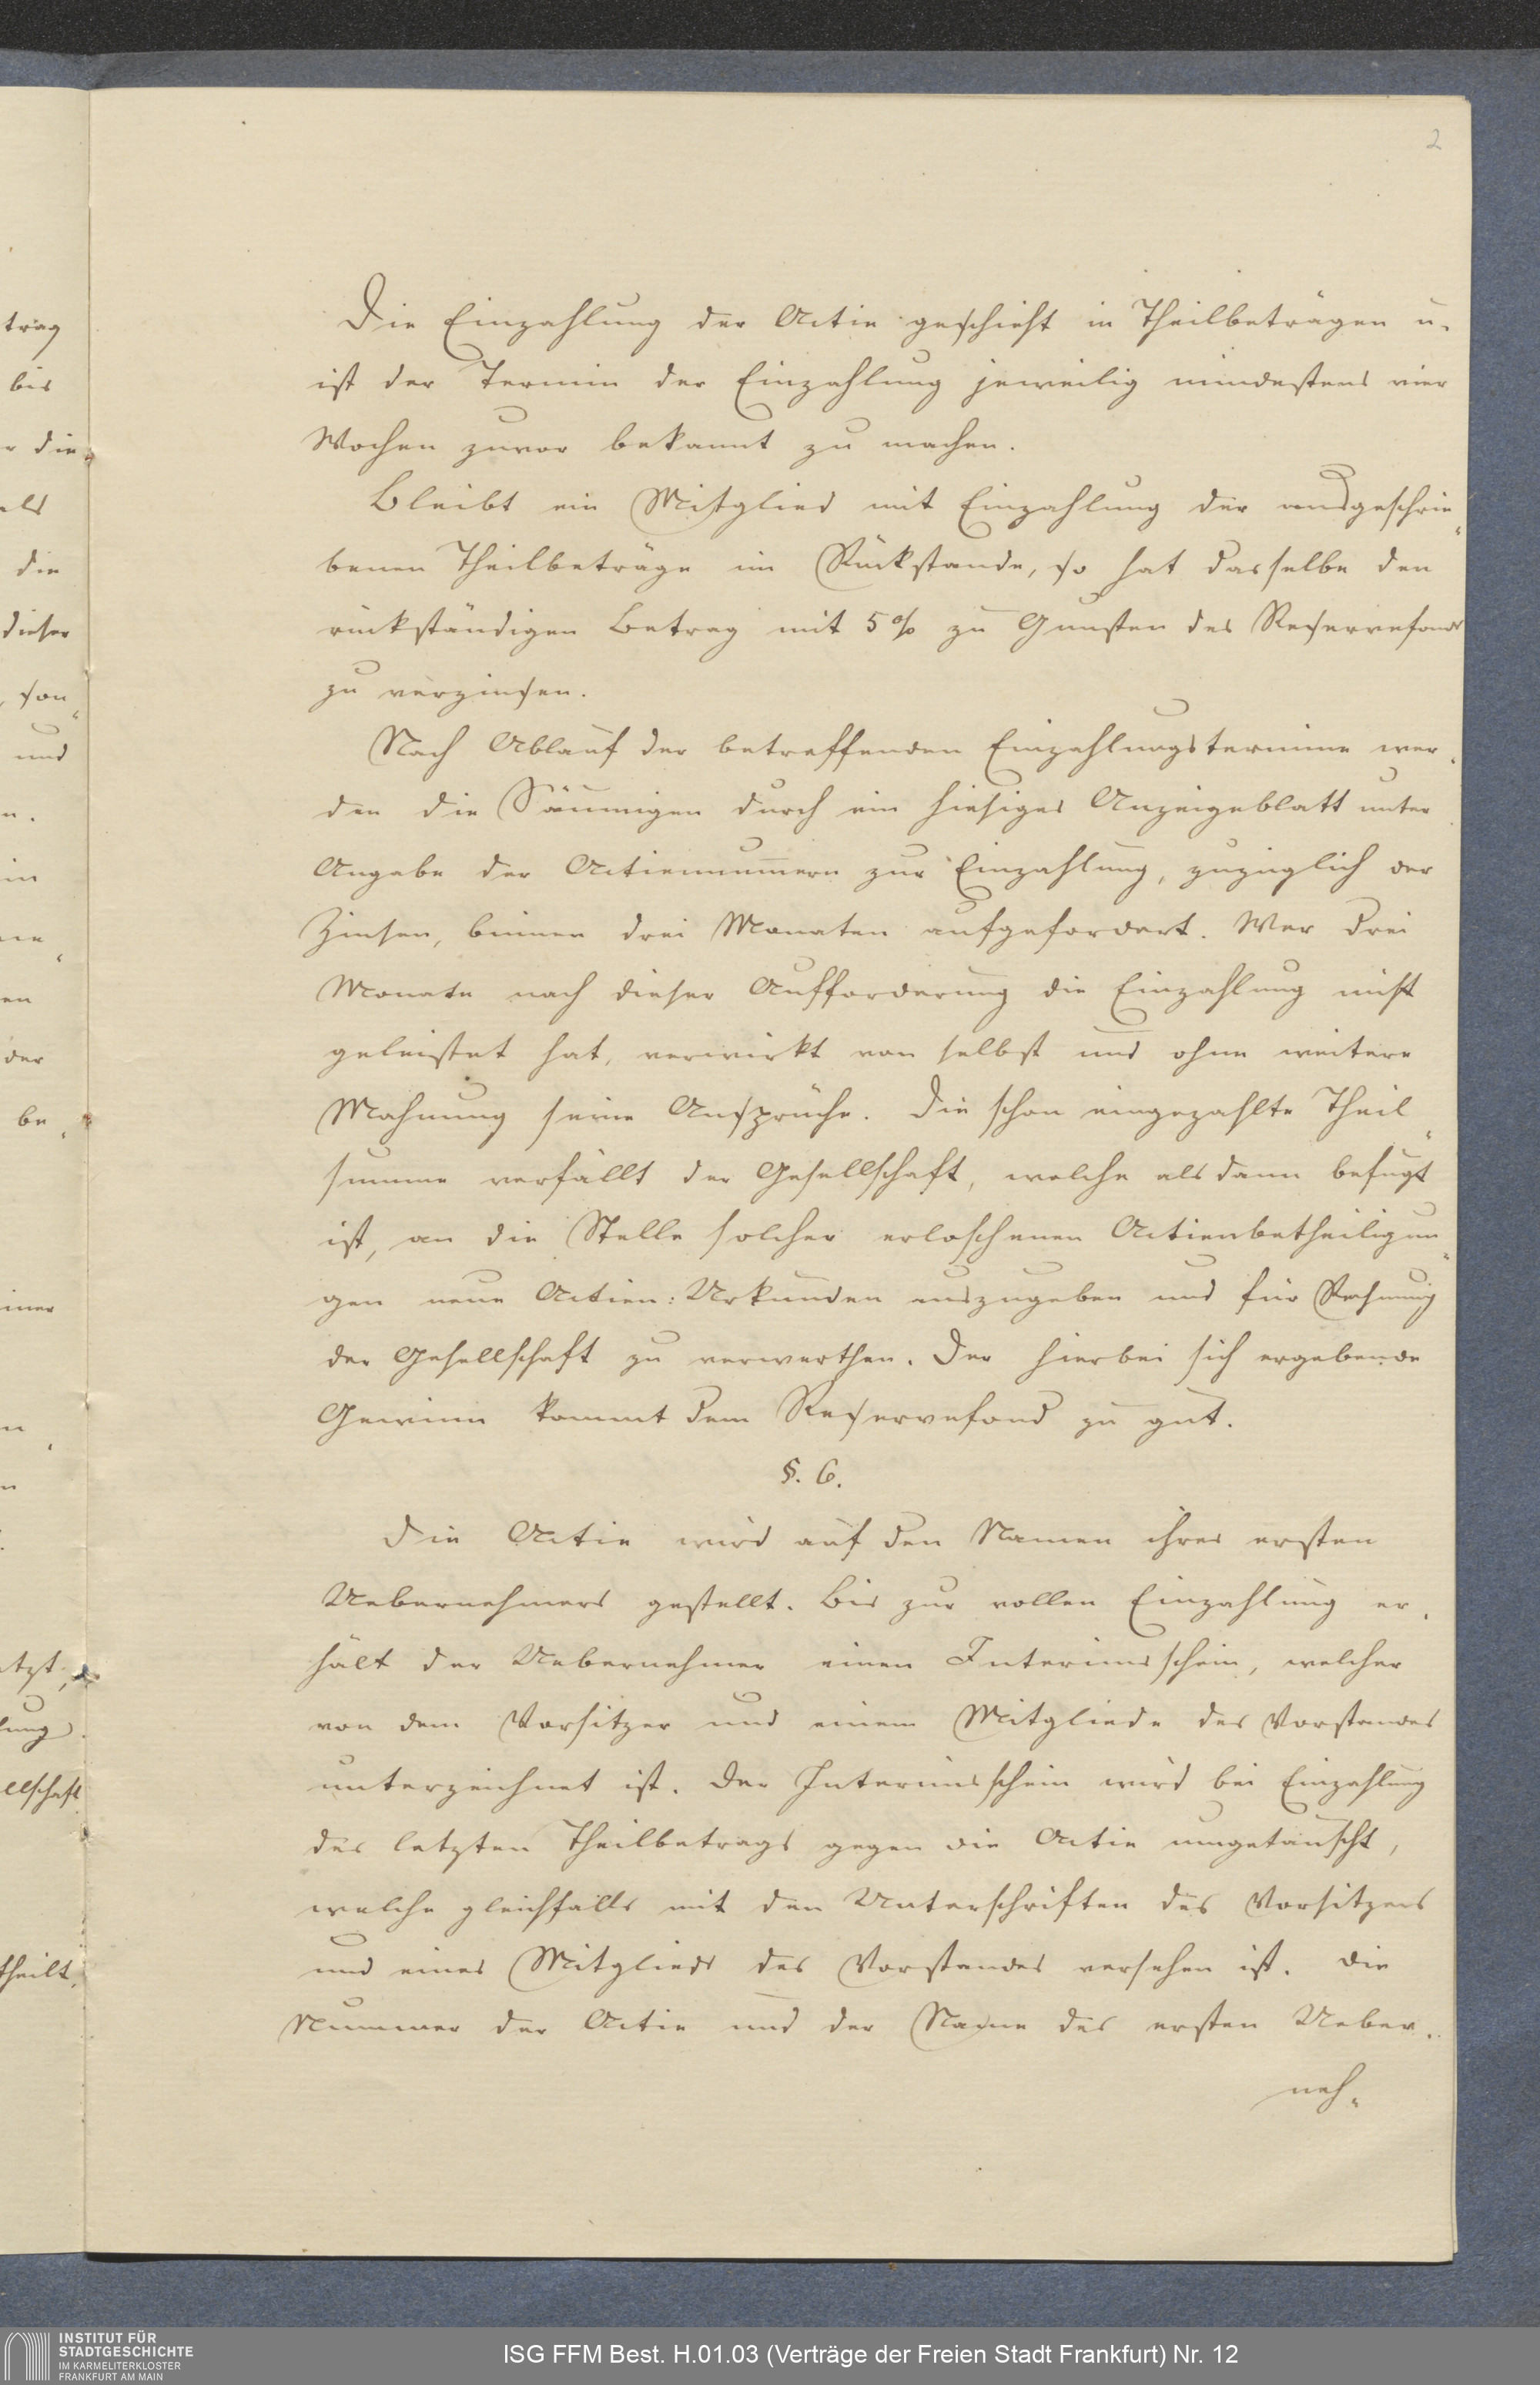 2
Die Einzahlung der Actie geschieht in Theilbeträgen u.
ist der Termin der Einzahlung jeweilig mindestens vier
Wochen zuvor bekannt zu machen.
Bleibt ein Mitglied mit Einzahlung der ausgeschrie„
benen Theilbeträge im Rückstande, so hat dasselbe den
rückständigen Betrag mit 5% zu Gunsten des Reservefonds
zu verzinsen.
Nach Ablauf der betreffenden Einzahlungstermine wer„
den die Säumigen durch ein hiesiges Anzeigeblatt unter
Angabe der Actiennum̄ern zur Einzahlung, zuzüglich der
Zinsen, binnen drei Monaten aufgefordert. Wer drei
Monate nach dieser Aufforderung die Einzahlung nicht
geleistet hat, verwirkt von selbst und ohne weitere
Mahnung seine Ansprüche. Die schon eingezahlte Theil„
summe verfällt der Gesellschaft, welche alsdann befugt
ist, an die Stelle solcher erloschenen Actienbetheiligun„
gen neue Actien: Urkunden auszugeben und für Rechnung
der Gesellschaft zu verwerthen. Der hierbei sich ergebende
Gewinn kommt dem Reservefond zu gut.
§. 6.
Die Actie wird auf den Namen ihres ersten
Uebernehmers gestellt. Bis zur vollen Einzahlung er„
hält der Uebernehmer einen Interimsschein, welcher
von dem Vorsitzer und einem Mitgliede des Vorstandes
unterzeichnet ist. Der Interimsschein wird bei Einzahlung
des letzten Theilbetrags gegen die Actie umgetauscht,
welche gleichfalls mit den Unterschriften des Vorsitzers
und eines Mitglieds des Vorstandes versehen ist. Die
Nummer der Actie und der Name des ersten Ueber„
neh„
trag
bis
die
als
die
dieser
son„
und
der
be„
einer
llschaft
theilt,
INSTITUT FÜR
STADTGESCHICHTE
IM KARMELITERKLOSTER
FRANKFURT AM MAIN
ISG FFM Best. H.01.03 (Verträge der Freien Stadt Frankfurt) Nr. 12